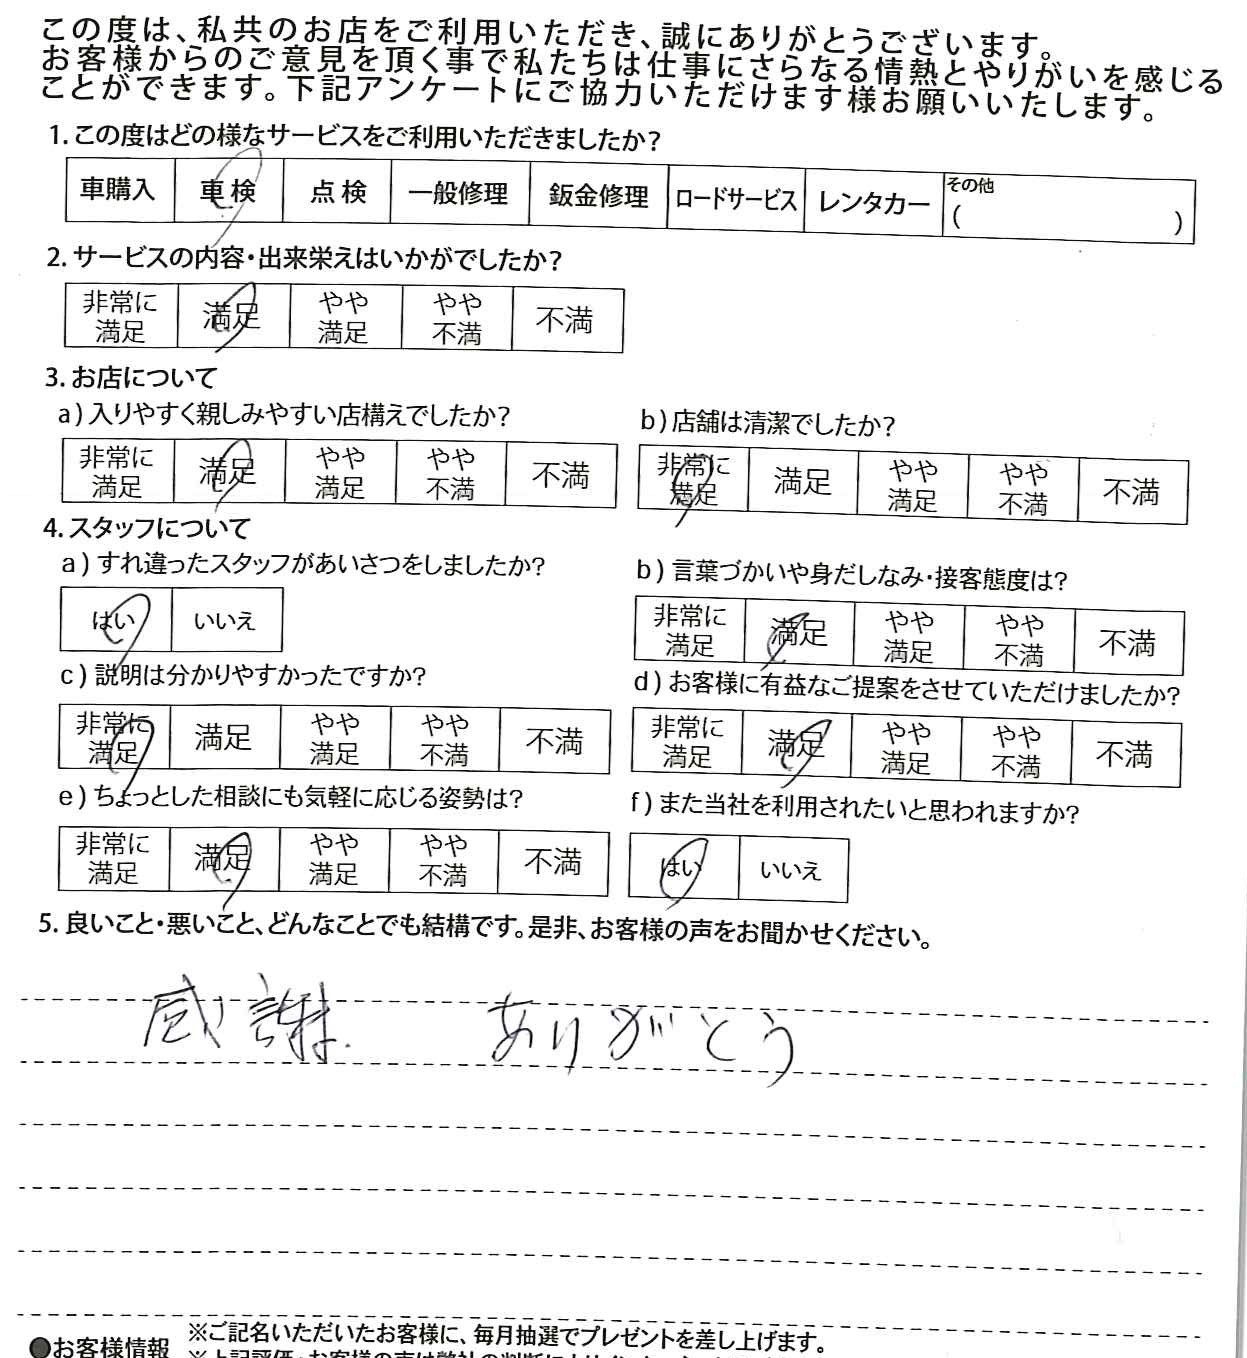 この度は、私共のお店をご利用いただき、誠にありがとうございます。
お客様からのご意見を頂く事で私たちは仕事にさらなる情熱とやりがいを感じる
ことができます。下記アンケートにご協力いただけます様お願いいたします。
1.この度はどの様なサービスをご利用いただきましたか?
車購入 車検 点検 一般修理 鈑金修理 ロードサービス レンタカー その他 ( )
2.サービスの内容・出来栄えはいかがでしたか?
非常に満足 満足 やや満足 やや不満 不満
3.お店について
a)入りやすく親しみやすい店構えでしたか?
非常に満足 満足 やや満足 やや不満 不満
b)店舗は清潔でしたか?
非常に満足 満足 やや満足 やや不満 不満
4.スタッフについて
a)すれ違ったスタッフがあいさつをしましたか?
はい いいえ
b)言葉づかいや身だしなみ・接客態度は?
非常に満足 満足 やや満足 やや不満 不満
c)説明は分かりやすかったですか?
非常に満足 満足 やや満足 やや不満 不満
d)お客様に有益なご提案をさせていただけましたか?
非常に満足 満足 やや満足 やや不満 不満
e)ちょっとした相談にも気軽に応じる姿勢は?
非常に満足 満足 やや満足 やや不満 不満
f)また当社を利用されたいと思われますか?
はい いいえ
5.良いこと・悪いこと、どんなことでも結構です。是非、お客様の声をお聞かせください。
感謝. ありがとう
●お客様情報 ※ご記名いただいたお客様に、毎月抽選でプレゼントを差し上げます。